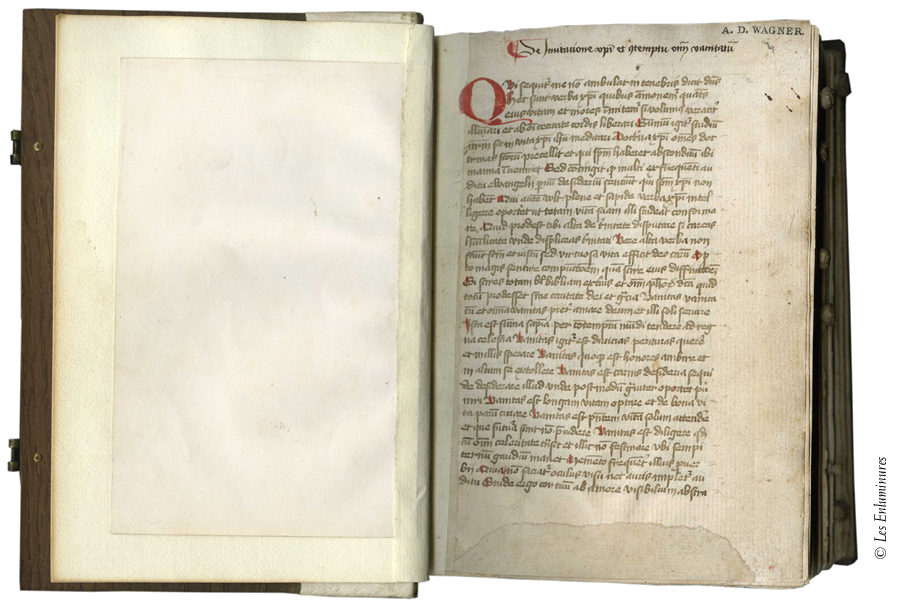 A. D. WAGNER.
De Imitatione xpi et gtemptu oim vanitatū
Qui sequit' me nō ambulat in tenebris dicit dns
hec sunt verba xpi quibus āmonem' quaten'
eius vitam et mores imitem' si volum' veracit'
illūiari et ab oī cecitate cordis liberari Sūmū igit' studiū
nr̄m sit in vita xpi ihū meditari Doctrīa xpi oēs doc
trinas sctoꝝ precellit et qui spm haberet absconditū ibi
manna īveniret Sed cōtingit qꝫ multi ex frequēti au
ditu ewangelii pvū desideriū sentiūt qui spm xpi non
habēt Qui autē vult plene et sapide verba xpi intel
ligere oportet ut totam vitā suam illi studeat conforma
re Quid prodest tibi alta de t'nitate disputare si careas
hūilitate unde displiceas t'nitati Vere alta verba non
faciūt sctm et iustū sed virtuosa vita efficit deo carū Op
to magis sentire compūctōem quā scire eius diffinitōem
Si scires totam bibliam exteri' et oīm ph'oꝝ dicta quid
totū prodesset sine caritate dei et gr̄cia Vanitas vanita
tū et omīa vanitas preter amare deum et illi soli servire
Ista est sūma sapīa per cōtemptū mūdi tendere ad reg
na celestia Vanitas igit' est divicias perituras querē
et in illis sperare Vanitas quoqꝫ est honores ambire et
in altum se extollere Vanitas est carnis desideria sequi
et desiderare illud unde postmodū g'viter oportet pu
niri Vanitas est longam vitam optare et de bona vi
ta parū curare Vanitas est pn̄tem vitā solum attendē
et que futura sunt nō p̄videre Vanitas est diligere qd
cū oīm celeritate trāsit et illic nō festinare ubi sempi
ternū gaudiū manet Memēto frequēt' illius prover
bii Quia nō saciat' oculus visu nec auris implet' au
ditu Stude ergo cor tuū ab amore visibilium abstra
© Les Enluminures